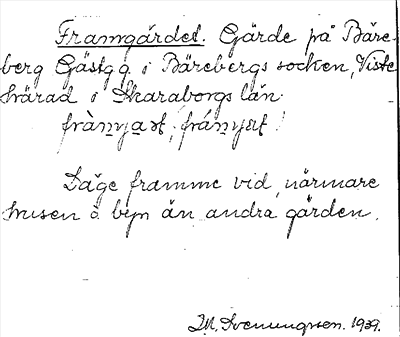 Framgärdet. Gärde på Bäre-
berg Gästgg i Bärebergs socken, Viste
härad i Skaraborgs län.
Låge framme vid, närmare
husen å byn än andra gärden.
M. Svenungsson. 1939.